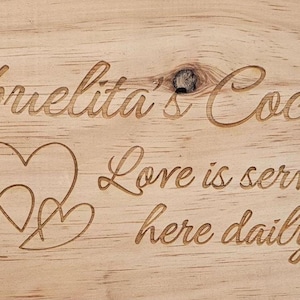 bruelita's Coc
Love is serv
here daily